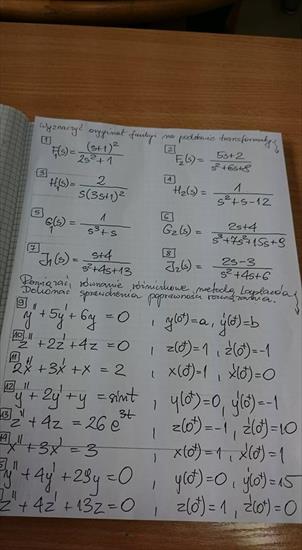 Wyznaczyć oryginał funkcji na podstawie transformaty
1 F₁(s) = (s+1)² / (2s²+1)
2 F₂(s) = (5s+2) / (s²+6s+8)
3 H₁(s) = 2 / (s(3s+1)²)
4 H₂(s) = 1 / (s²+s-12)
5 G₁(s) = 1 / (s³+s)
6 G₂(s) = (2s+4) / (s³+7s²+15s+9)
7 J₁(s) = (s+4) / (s²+4s+13)
8 J₂(s) = (2s-3) / (s²+4s+6)
równanie różniczkowe metodą Laplace'a
Dokonać sprawdzenia poprawności rozwiązania.
9 y''+5y'+6y=0 , y(0⁺)=a, y'(0⁺)=b
10 z''+2z'+4z=0 , z(0⁺)=1, z'(0⁺)=-1
11 2x''+3x'+x=2 , x(0⁺)=1, x'(0⁺)=0
12 y''+2y'+y=sint , y(0⁺)=0, y'(0⁺)=-1
13 z''+4z=26e³ᵗ , z(0⁺)=-1, z'(0⁺)=10
14 x''+3x'=3 , x(0⁺)=1, x'(0⁺)=1
y''+4y'+29y=0 , y(0⁺)=0, y'(0⁺)=15
z''+4z'+13z=0 , z(0⁺)=1, z'(0⁺)=0